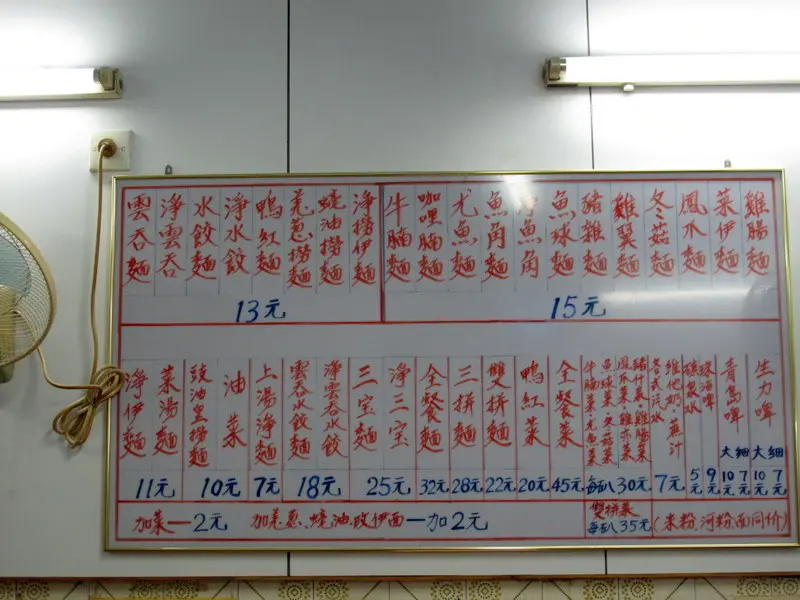 雲吞麵
淨雲吞
水餃麵
淨水餃
鴨紅麵
羌葱撈麵
蠔油撈麵
淨撈伊麵
13元
牛腩麵
咖哩腩麵
尤魚麵
魚角麵
淨魚角
魚球麵
豬雜麵
雞翼麵
冬菇麵
鳳爪麵
菜伊麵
雞腸麵
15元
淨伊麵
菜湯麵
11元
豉油皇撈麵
油菜
10元
上湯淨麵
7元
雲吞水餃麵
淨雲吞水餃
18元
三宝麵
淨三宝
25元
全餐麵
32元
三拼麵
28元
雙拼麵
22元
鴨紅菜
20元
全餐菜
45元
牛腩菜·尤魚菜
魚球菜·冬菇菜
鳳爪菜·雞亦菜
豬什菜·雞腸菜
30元
各式汽水
維他奶·蔗汁
7元
礦泉水
5元
啤
9元
青島啤
大 細
10元 7元
生力啤
大 細
10元 7元
加菜一2元
加羌葱、蠔油、改伊面一加2元
雙拼菜
35元
(米粉.河粉.面同价)